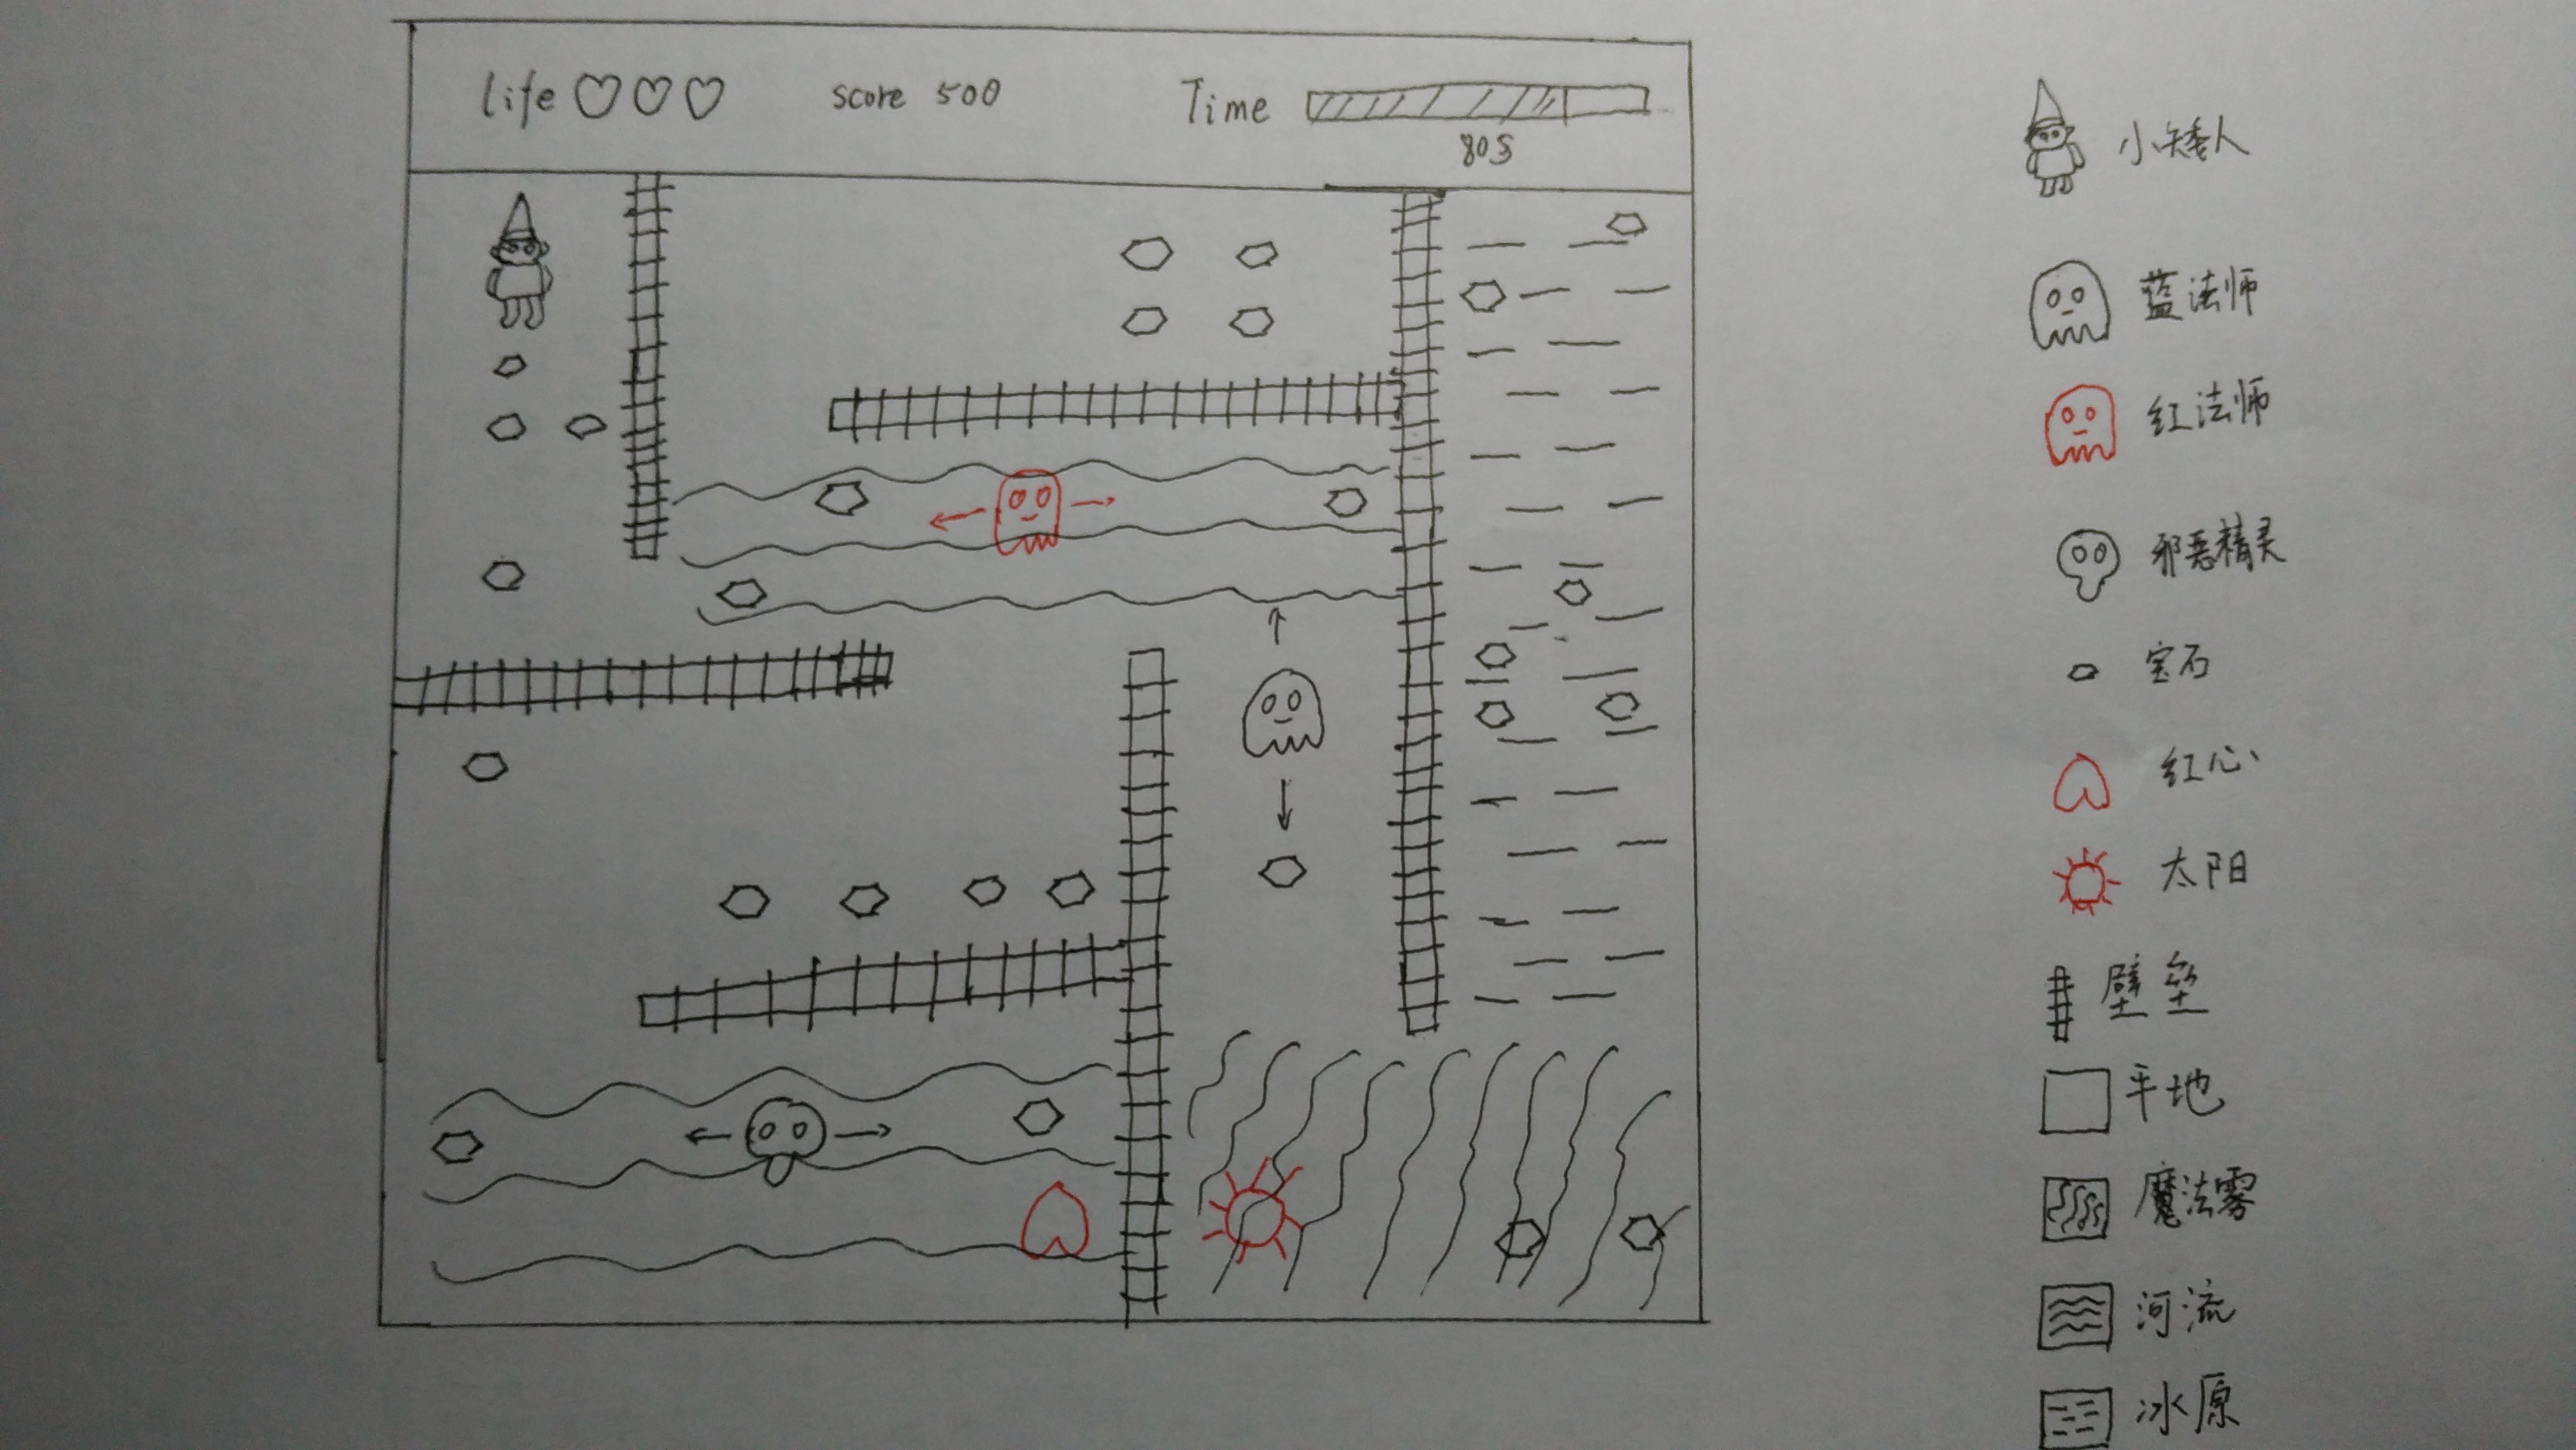 life score 500 Time
80S
小矮人
蓝法师
红法师
邪恶精灵
宝石
红心
太阳
壁垒
平地
魔法雾
河流
冰原